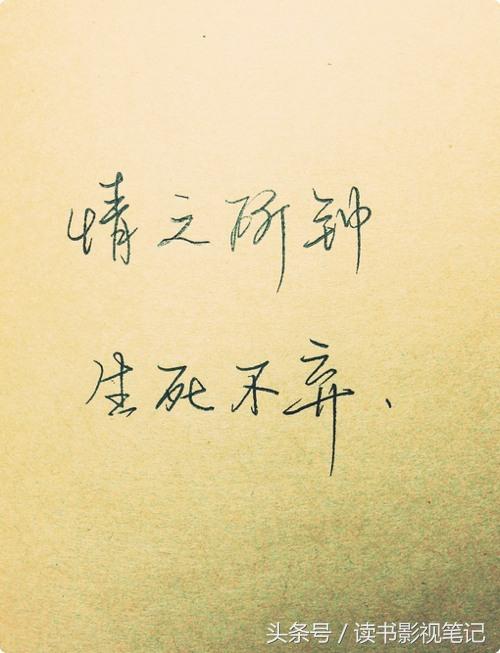 情之所钟
生死不弃、
头条号／读书影视笔记